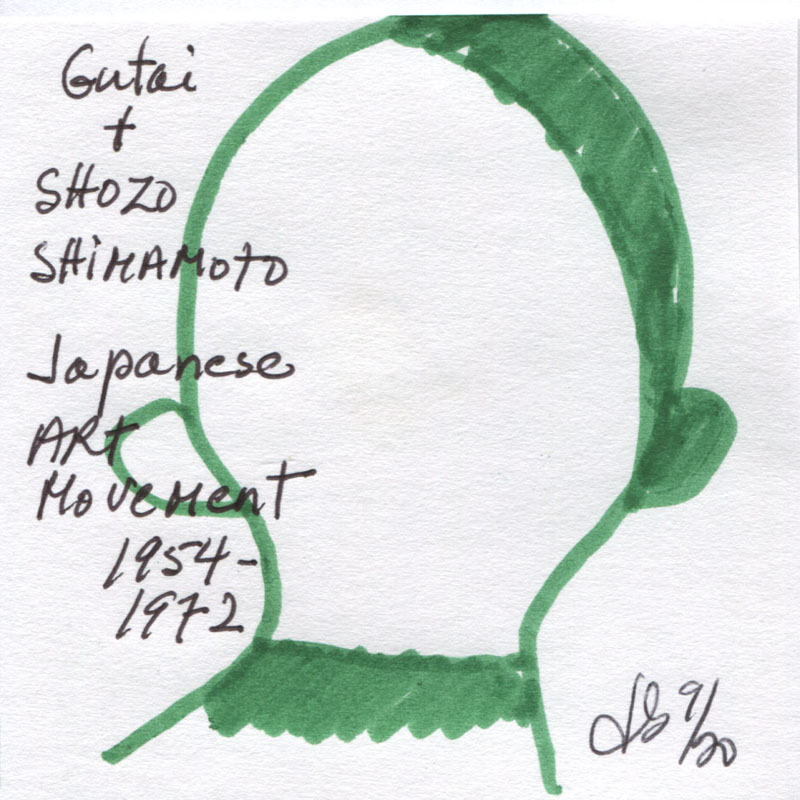 Gutai
+
SHOZO
SHiMAMOTO
Japanese
ART
MOVEMENT
1954-
1972
9/20